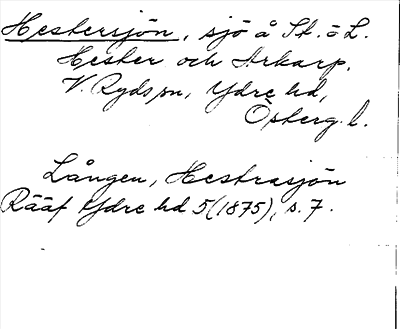 Hestersjön, sjö å St. o L.
Hester och Arkarp,
V. Ryds sn, Ydre hd,
Österg. l.
Lången, Hestrasjön
Rääf Ydre hd 5(1875), s. 7.